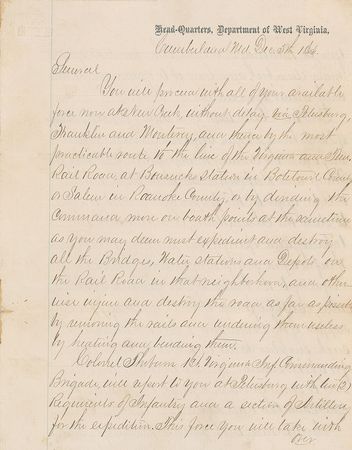 Head-Quarters, Department of West Virginia,
Cumberland Md. Dec 5th 186
General
You will proceed with all of your available
force now at New Creek, without delay, via Petersburg,
Franklin and Monterey, and thence by the most
practicable route to the line of the Virginia and Tenn
Rail Road at Bonsacks Station in Botetourt County
or Salem in Roanoke County, or by dividing the
command, move on both points at the same time
as you may deem most expedient and destroy
all the Bridges, Water stations and Depots on
the Rail Road in that neighborhood, and other-
wise injure and destroy the road as far as possible
by removing the rails and rendering them useless
by heating and bending them.
Colonel Thoburn 1st Virginia Inf Commanding
Brigade, will report to you at Petersburg with two (2)
Regiments of Infantry and a section of Artillery
for the expedition. This force you will take with
over